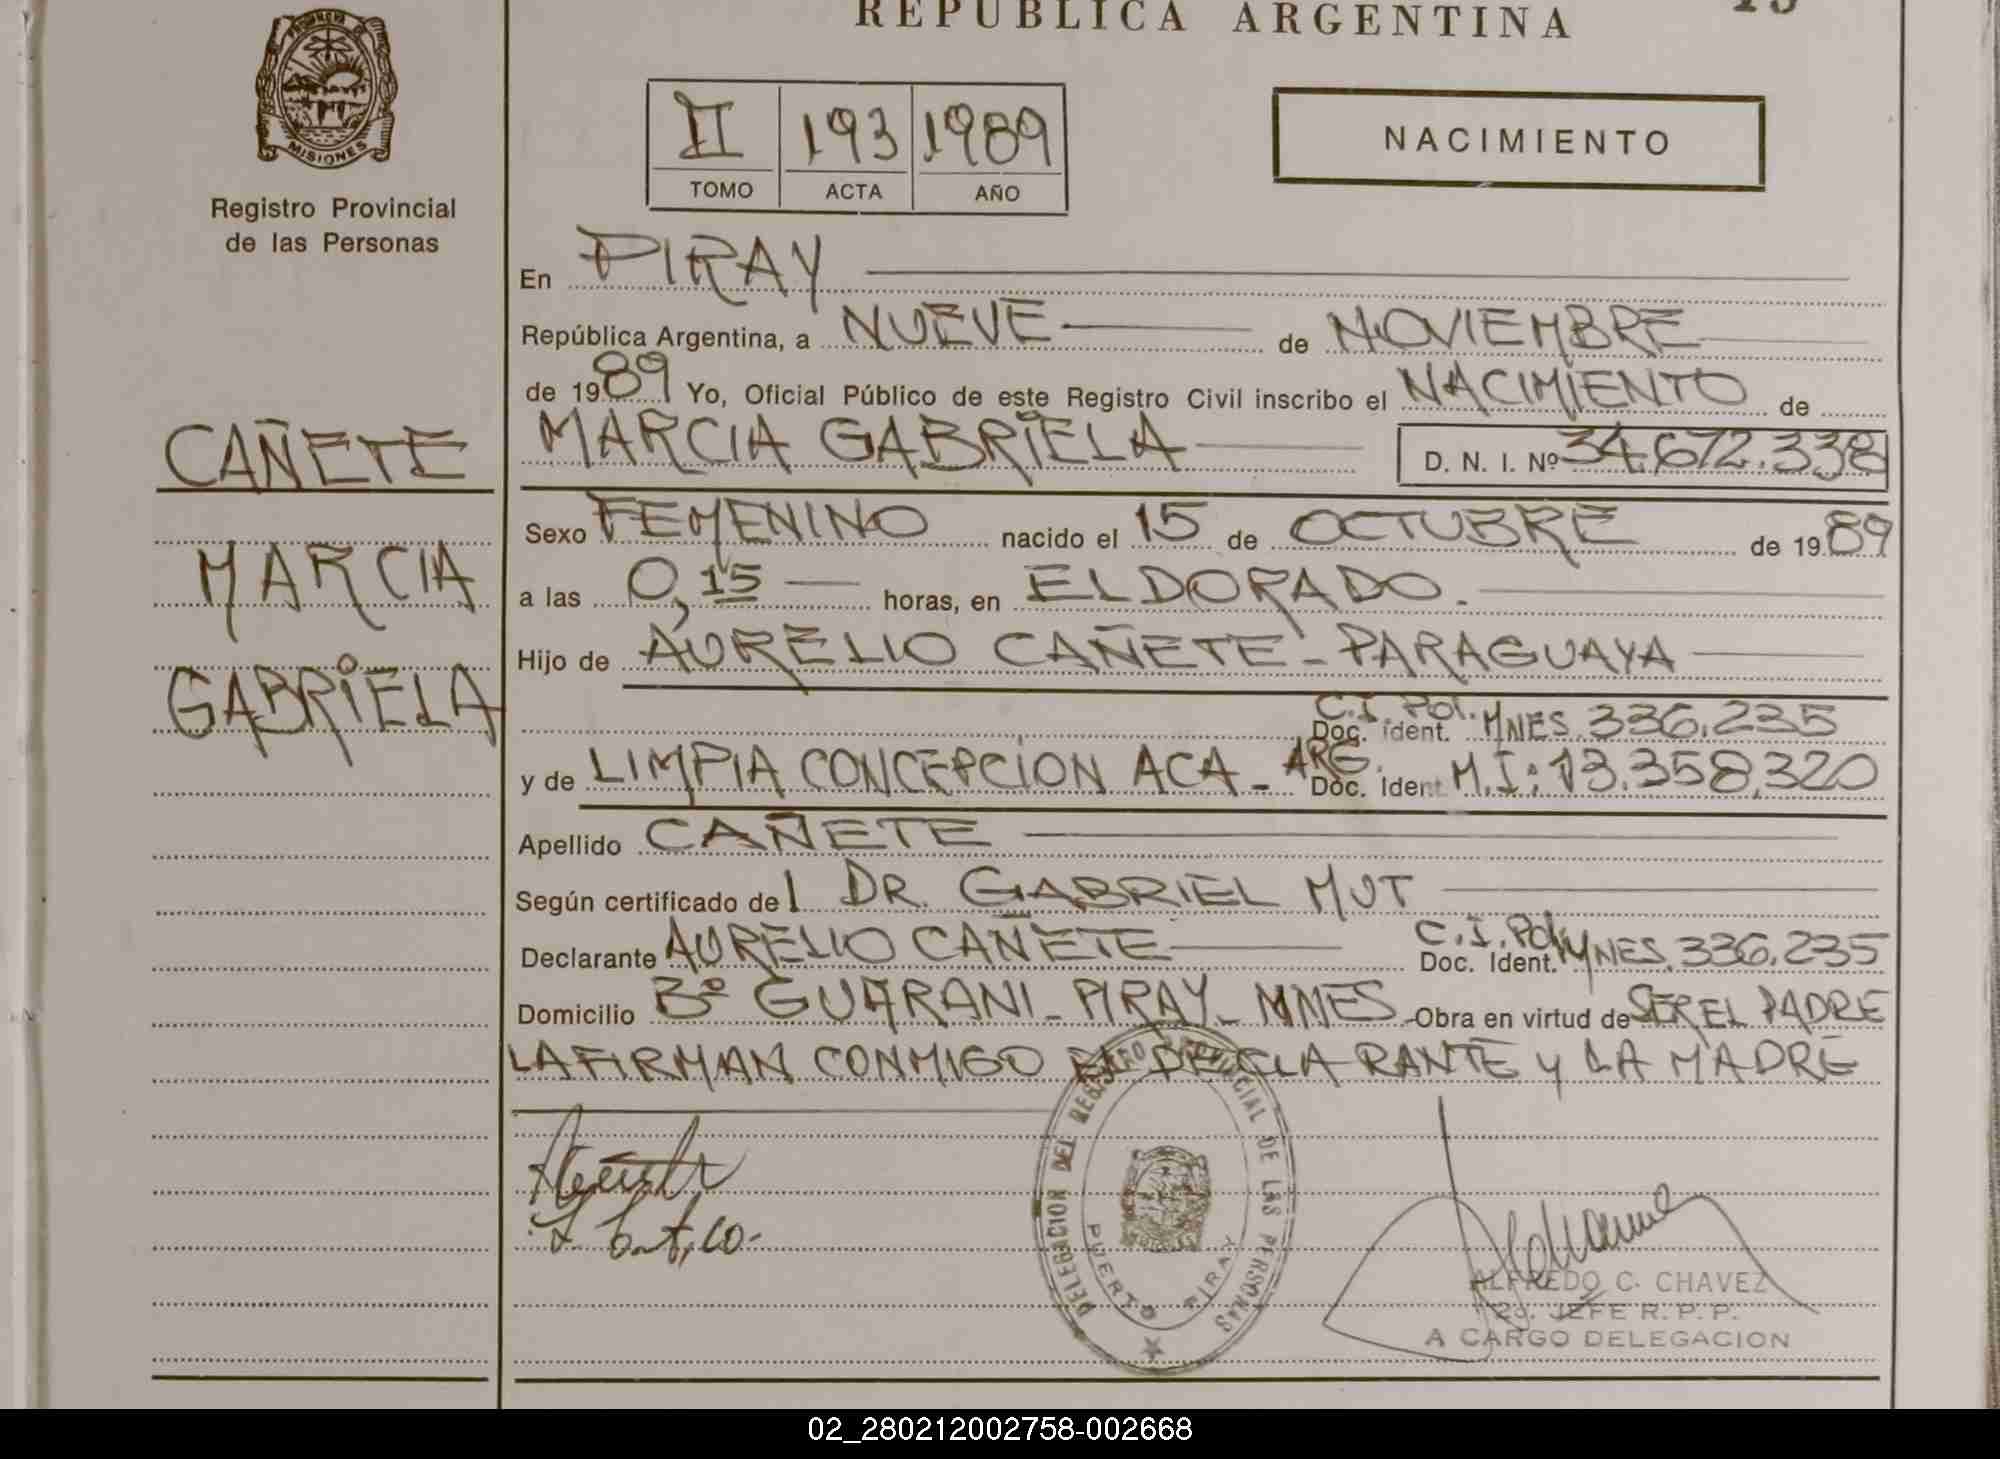 REPUBLICA ARGENTINA
MISIONES
Registro Provincial
de las Personas
II 193 1989
TOMO ACTA AÑO
NACIMIENTO
En PIRAY
República Argentina, a NUEVE de NOVIEMBRE
de 1989 Yo, Oficial Público de este Registro Civil inscribo el NACIMIENTO de
CAÑETE
MARCIA
GABRIELA
MARCIA GABRIELA D. N. I. Nº 34.672.338
Sexo FEMENINO nacido el 15 de OCTUBRE de 1989
a las 0,15 horas, en ELDORADO.
Hijo de AURELIO CAÑETE - PARAGUAYA
C.I. Pol. Doc. ident. MNES. 336.235
y de LIMPIA CONCEPCION ACA - ARG. Doc. Ident M.I: 13.358.320
Apellido CAÑETE
Según certificado del DR. GABRIEL MUT
Declarante AURELIO CAÑETE C.I. Pol. Doc. Ident. MNES. 336.235
Domicilio Bº GUARANI - PIRAY - MNES - Obra en virtud de SER EL PADRE
LA FIRMAN CONMIGO EL DECLARANTE Y LA MADRE
DELEGACION DEL REGISTRO PROVINCIAL DE LAS PERSONAS
PUERTO PIRAY
ALFREDO C. CHAVEZ
2do. JEFE R. P. P.
A CARGO DELEGACION
02_280212002758-002668